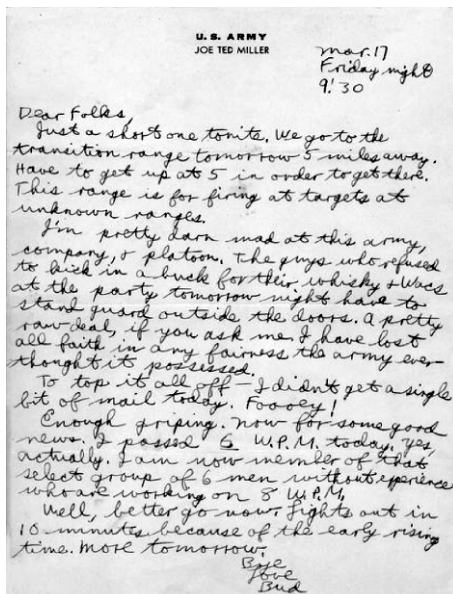 U.S. ARMY
JOE TED MILLER
Mar. 17
Friday night
9:30
Dear Folks,
Just a short one tonite. We go to the
transition range tomorrow 5 miles away.
Have to get up at 5 in order to get there.
This range is for firing at targets at
unknown ranges.
I'm pretty darn mad at this army,
company, & platoon. The guys who refused
to kick in a buck for their whisky & Wacs
at the party tomorrow night have to
stand guard outside the doors. A pretty
raw deal, if you ask me. I have lost
all faith in any fairness the army ever
thought it possessed.
To top it all off — I didn't get a single
bit of mail today. Foooey!
Enough griping. Now for some good
news. I passed 6 W.P.M. today. Yes,
actually. I am now member of that
select group of 6 men without experience
who are working on 8 W.P.M.
Well, better go now. Lights out in
10 minutes because of the early rising
time. More tomorrow.
Bye
Love
Bud